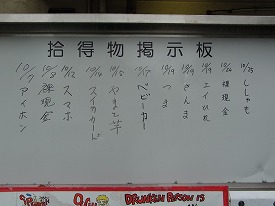 拾得物掲示板
10/25 ししゃも
10/24 裸現金
10/19 エイひれ
10/19 さんま
10/19 つま
10/17 ベビーカー
10/15 やまと芋
10/14 スイカカード
10/12 スマホ
10/8 裸現金
10/7 アイホン
DRUNKEN PERSON IS